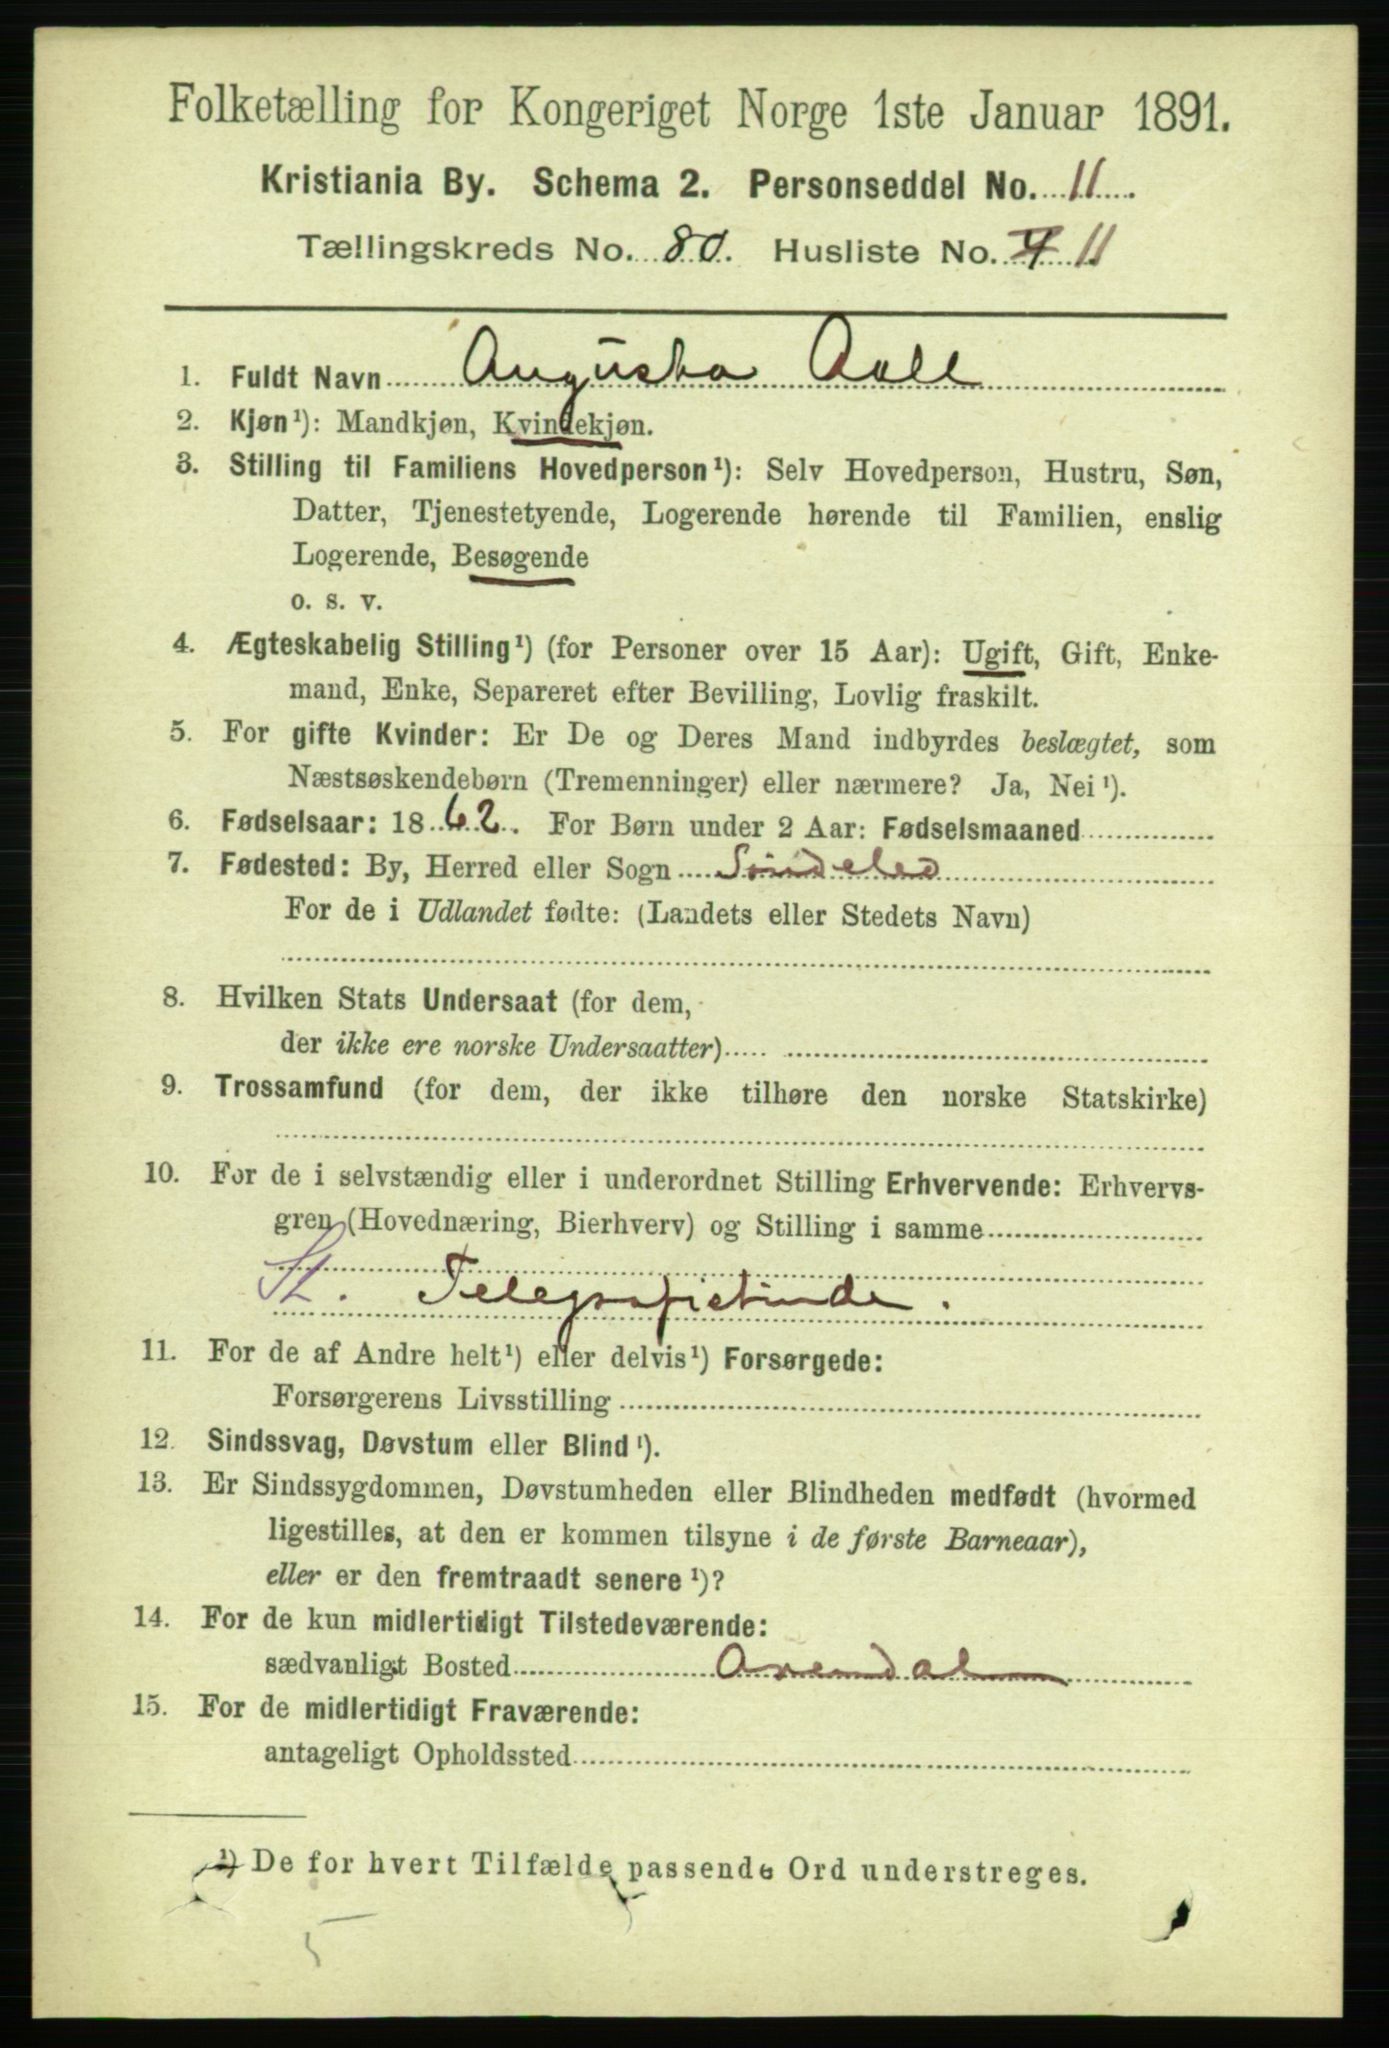 Folketælling for Kongeriget Norge 1ste Januar 1891.
Kristiania By. Schema 2. Personseddel No. 11.
Tællingskreds No. 80. Husliste No. 11
1. Fuldt Navn Augusta Aall
2. Kjøn¹): Mandkjøn, Kvindekjøn.
3. Stilling til Familiens Hovedperson¹): Selv Hovedperson, Hustru, Søn,
Datter, Tjenestetyende, Logerende hørende til Familien, enslig
Logerende, Besøgende
o. s. v.
4. Ægteskabelig Stilling¹) (for Personer over 15 Aar): Ugift, Gift, Enke-
mand, Enke, Separeret efter Bevilling, Lovlig fraskilt.
5. For gifte Kvinder: Er De og Deres Mand indbyrdes beslægtet, som
Næstsøskendebørn (Tremenninger) eller nærmere? Ja, Nei¹).
6. Fødselsaar: 1862. For Børn under 2 Aar: Fødselsmaaned
7. Fødested: By, Herred eller Sogn Søndeled
For de i Udlandet fødte: (Landets eller Stedets Navn)
8. Hvilken Stats Undersaat (for dem,
der ikke ere norske Undersaatter)
9. Trossamfund (for dem, der ikke tilhøre den norske Statskirke)
10. For de i selvstændig eller i underordnet Stilling Erhvervende: Erhvervs-
gren (Hovednæring, Bierhverv) og Stilling i samme
St. Telegrafistinde.
11. For de af Andre helt¹) eller delvis¹) Forsørgede:
Forsørgerens Livsstilling
12. Sindssvag, Døvstum eller Blind¹).
13. Er Sindssygdommen, Døvstumheden eller Blindheden medfødt (hvormed
ligestilles, at den er kommen tilsyne i de første Barneaar),
eller er den fremtraadt senere¹)?
14. For de kun midlertidigt Tilstedeværende:
sædvanligt Bosted Arendal
15. For de midlertidigt Fraværende:
antageligt Opholdssted
¹) De for hvert Tilfælde passende Ord understreges.
5